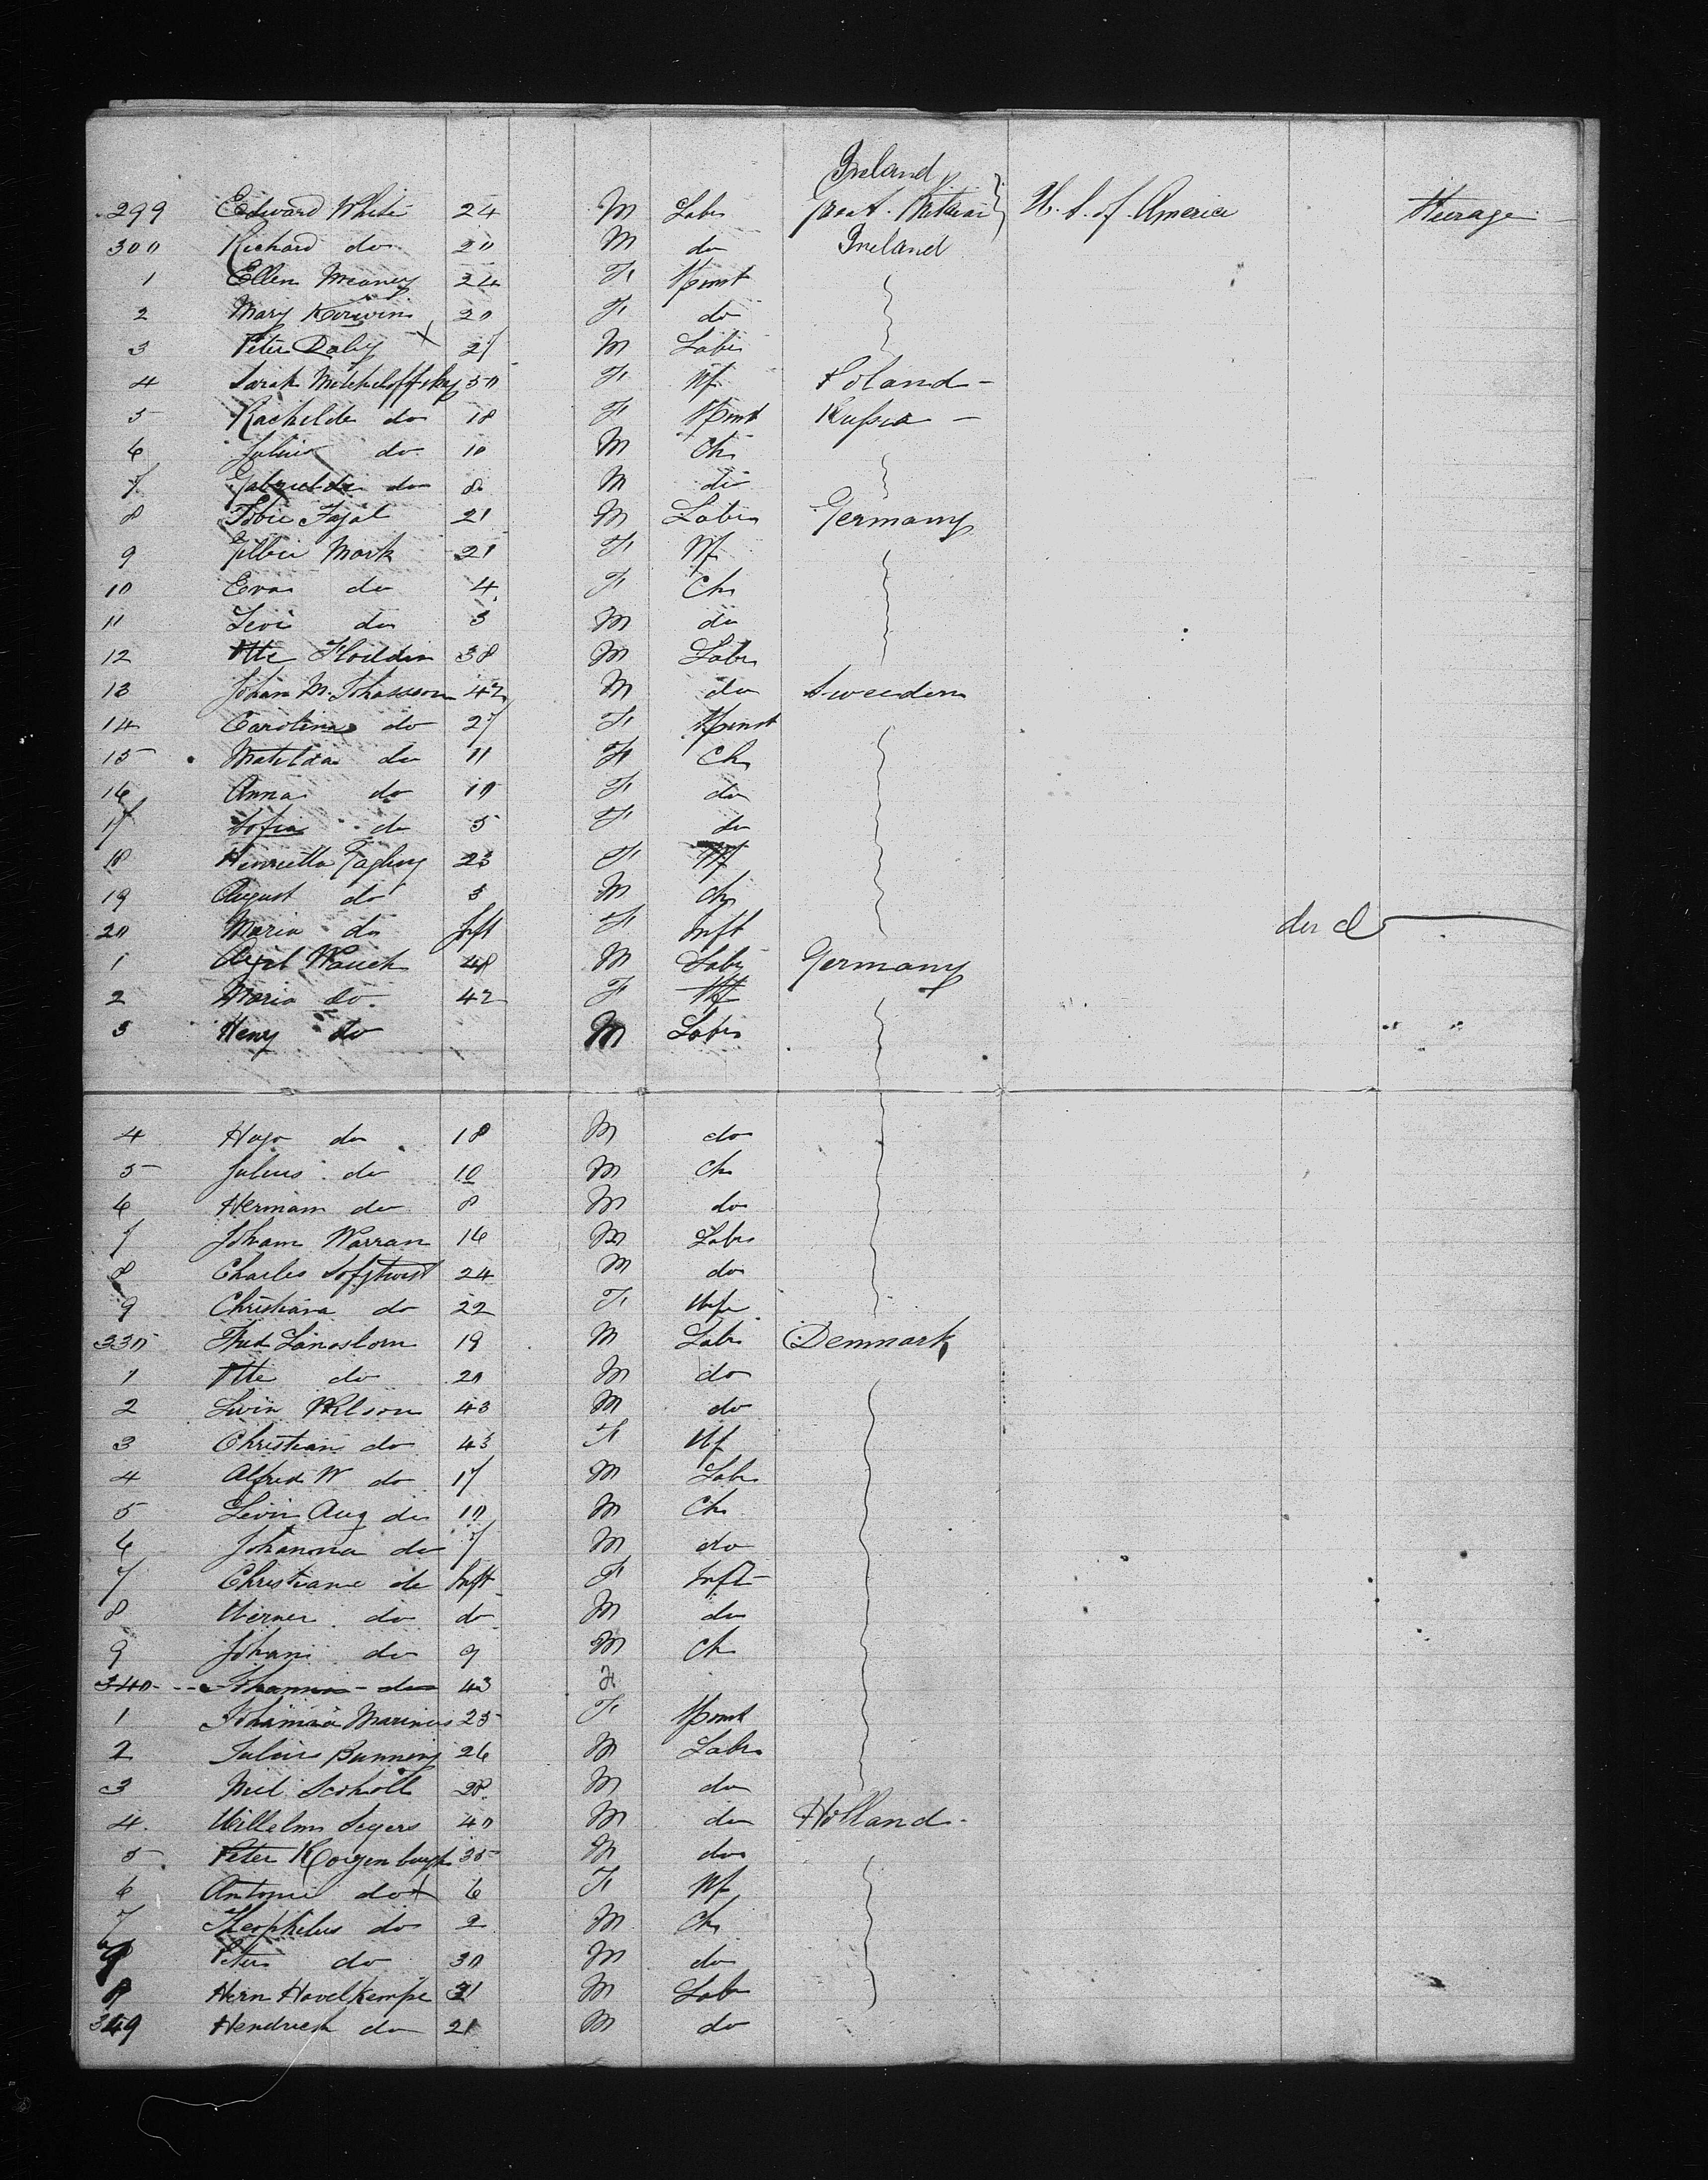 Ireland
299 Edward White 24 M Labr Great Britain } U. S. of America Steerage
300 Richard do 20 M do Ireland
1 Ellen Meaney 24 F Spinst
2 Mary Kerwin 20 F do
3 Peter Daly X 27 M Labr
4 Sarah 50 F Wf Poland -
5 Rachilde do 18 F Spinst Russia -
6 Julius do 10 M Ch
7 do 8 M do
8 Tobie 21 M Labr Germany
9 Mark 21 F Wf
10 Eva do 4 F Ch
11 Levi do 3 M do
12 Otte 38 M Labr
13 Johan M. Johasson 42 M do Sweeden
14 Carolina do 27 F Spinst
15 Matilda do 11 F Ch
16 Anna do 10 F do
17 Sofia do 5 F do
18 Henrietta 23 F Wf
19 August do 3 M Ch
20 Maria do Inft F Inft do d
1 Wauch 48 M Labr Germany
2 Maria do 42 F Wf
3 Heny do M Labr
4 Hugo do 18 M do
5 Julius do 10 M Ch
6 Hermam do 8 M do
7 Joham Warran 16 M Labr
8 Charles 24 M do
9 Christiana do 22 F Wife
330 Fred 19 M Labr Denmark
1 Otte do 20 M do
2 43 M do
3 Christian do 43 F Wf
4 Alfred W do 17 M Labr
5 Levin Aug do 10 M Ch
6 Johanna do 7 M do
7 Christiane do Inft F Inft
8 Werner do do M do
9 Johani do 9 M Ch
340 Johanna do 43 F
1 Marinus 25 F Spinst
2 Julius Bunning 26 M Labr
3 28 M do
4 Willelm Segers 40 M do Holland -
5 Peter 35 M do
6 Antonie do X 6 F Wf
7 Theophilus do 2 M Ch
do 30 M do
8 Hern Havelkempe 31 M Labr
349 Hendrick do 21 M do